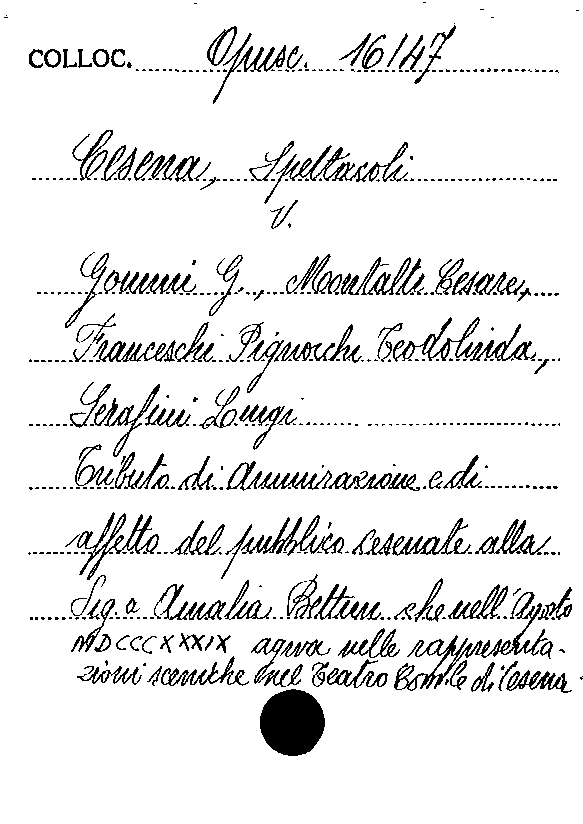 COLLOC. Opusc. 16/47
Cesena, Spettacoli
V.
Gommi G., Montalti Cesare,
Franceschi Pignocchi Teodolinda,
Serafini Luigi
Tributo di Ammirazione e di
affetto del pubblico cesenate alla
Sig.a Amalia Bettini che nell'Agosto
MDCCCXXXIX agiva nelle rappresenta-
zioni sceniche nel Teatro Com.le di Cesena.